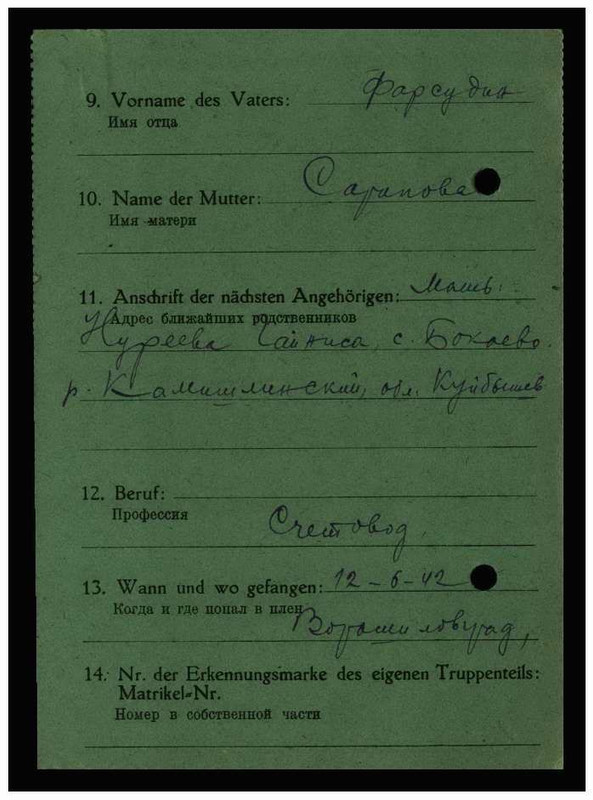 9. Vorname des Vaters: Фарсудин
Имя отца
10. Name der Mutter: Сагапова
Имя матери
11. Anschrift der nächsten Angehörigen: Мать:
Адрес ближайших родственников
Нуреева с. Бокаево.
р. Камишлинский, обл. Куйбышев
12. Beruf:
Профессия
Счетовод,
13. Wann und wo gefangen: 12-6-42
Когда и где попал в плен
Ворашиловград,
14. Nr. der Erkennungsmarke des eigenen Truppenteils:
Matrikel-Nr.
Номер в собственной части